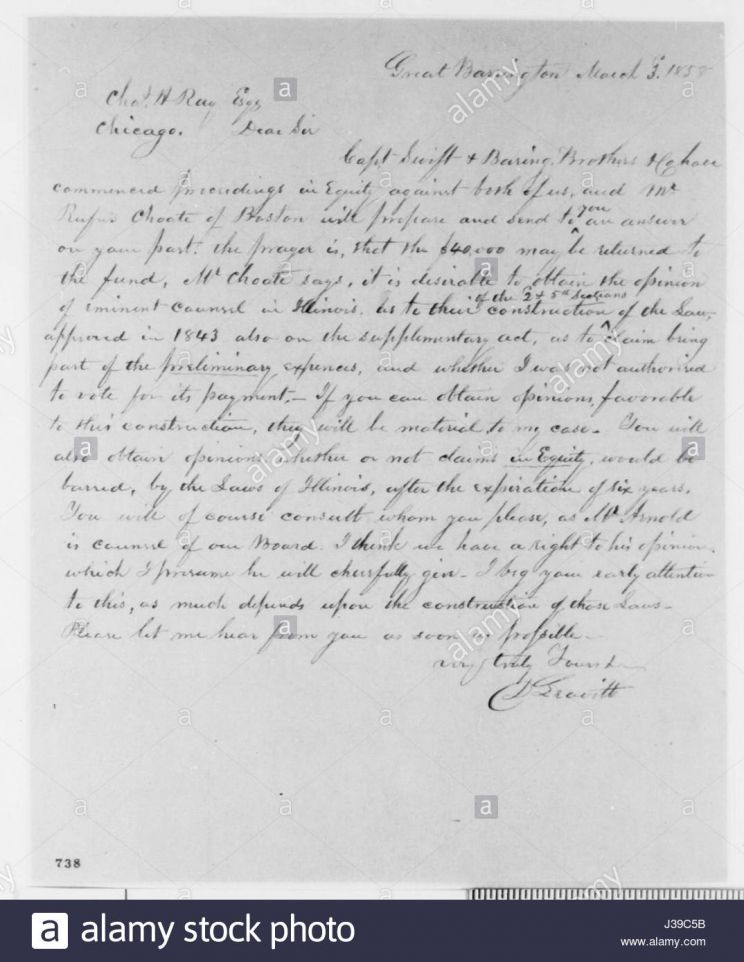 Great Barrington March 3. 1858
Chas. H Ray Esqr
Chicago. Dear Sir
Capt Swift & Baring, Brothers & Co have
commenced proceedings in Equity against both of us, and Mr
Rufus Choate of Boston will prepare and send to you an answer
on your part. the prayer is, that the $40,000 may be returned to
the fund, Mr Choate says, it is desirable to obtain the opinion
of the 2 & 5th Sections
of iminent counsel in Illinois. as to their construction of the Law,
approved in 1843 also on the supplementary act, as to claim being
part of the preliminary expences, and whether I was not authorised
to vote for its payment.- If you can obtain opinions, favorable
to this construction, they will be material to my case. You will
also obtain opinions whether or not claims in Equity, would be
barred, by the Laws of Illinois, after the expiration of six years.
You will of course consult whom you please, as Mr Arnold
is counsel of our Board. I think we have a right to his opinion,
which I presume he will cheerfully give. I beg your early attention
to this, as much depends upon the construction of those Laws-
Please let me hear from you as soon as possible-
very truly Yours
D Leavitt
738
a alamy stock photo
J39C5B
www.alamy.com